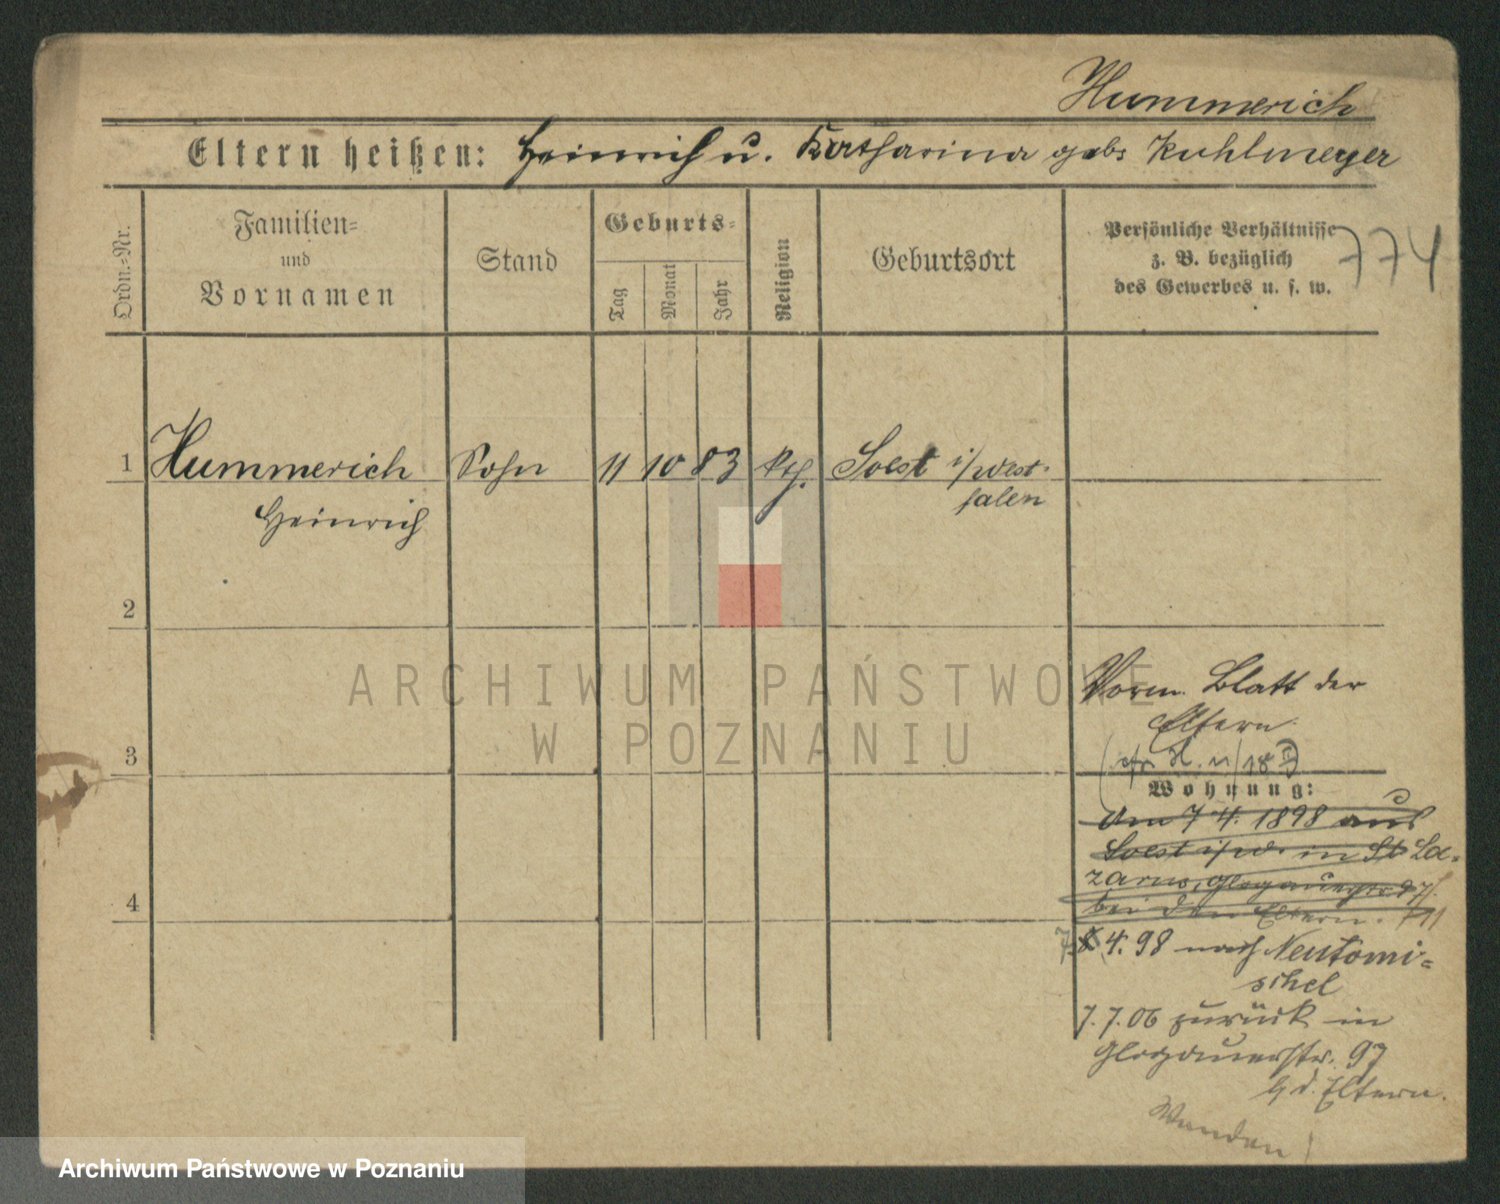 Hummerich
Eltern heißen: Heinrich u. Katharina geb. Kuhlmeyer
Ordn.-Nr.
Familien-
und
Vornamen
Stand
Geburts-
Tag
Monat
Jahr
Religion
Geburtsort
Persönliche Verhältnisse
z. B. bezüglich
des Gewerbes u. s. w.
774
1 Hummerich Sohn 11 10 83 kth. Soest i/West-
falen
Heinrich
2
ARCHIWUM PAŃSTWOWE
W POZNANIU
Vorm. Blatt der
Eltern
3
Wohnung:
Am 7 4. 1898 aus
Soest i/W. in St La-
zarus, Glogauerstr 97
bei den Eltern.
4
4. 98 nach Neutomi-
schel
7. 7. 06 zurück in
Glogauerstr. 97
b d. Eltern.
Wenden!
Archiwum Państwowe w Poznaniu